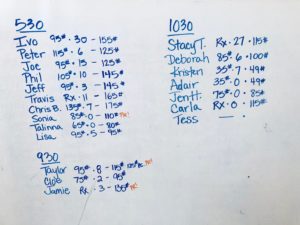 530
Ivo 95# . 30 - 155#
Peter 115# . 6 - 125#
Joe 95# . 13 - 125#
Phil 105# . 10 - 145#
Jeff 95# . 3 - 145#
Travis Rx . 11 - 165#
Chris B. 135# . 7 - 175#
Sonia 85# . 0 - 110# PR!
Talinna 65# . 0 - 80#
Lisa 95# . 5 - 95#
930
Taylor 95# . 8 - 115# PR!
Cloe 75# . 2 - 95#
Jamie Rx . 3 - 135# PR!
1030
Stacy T. Rx . 27 . 115#
Deborah 85# 6 . 100#
Kristen 35# . 7 . 49#
Adair 35# . 0 . 49#
Jen H. 75# . 0 . 85#
Carla Rx . 0 . 115#
Tess — .